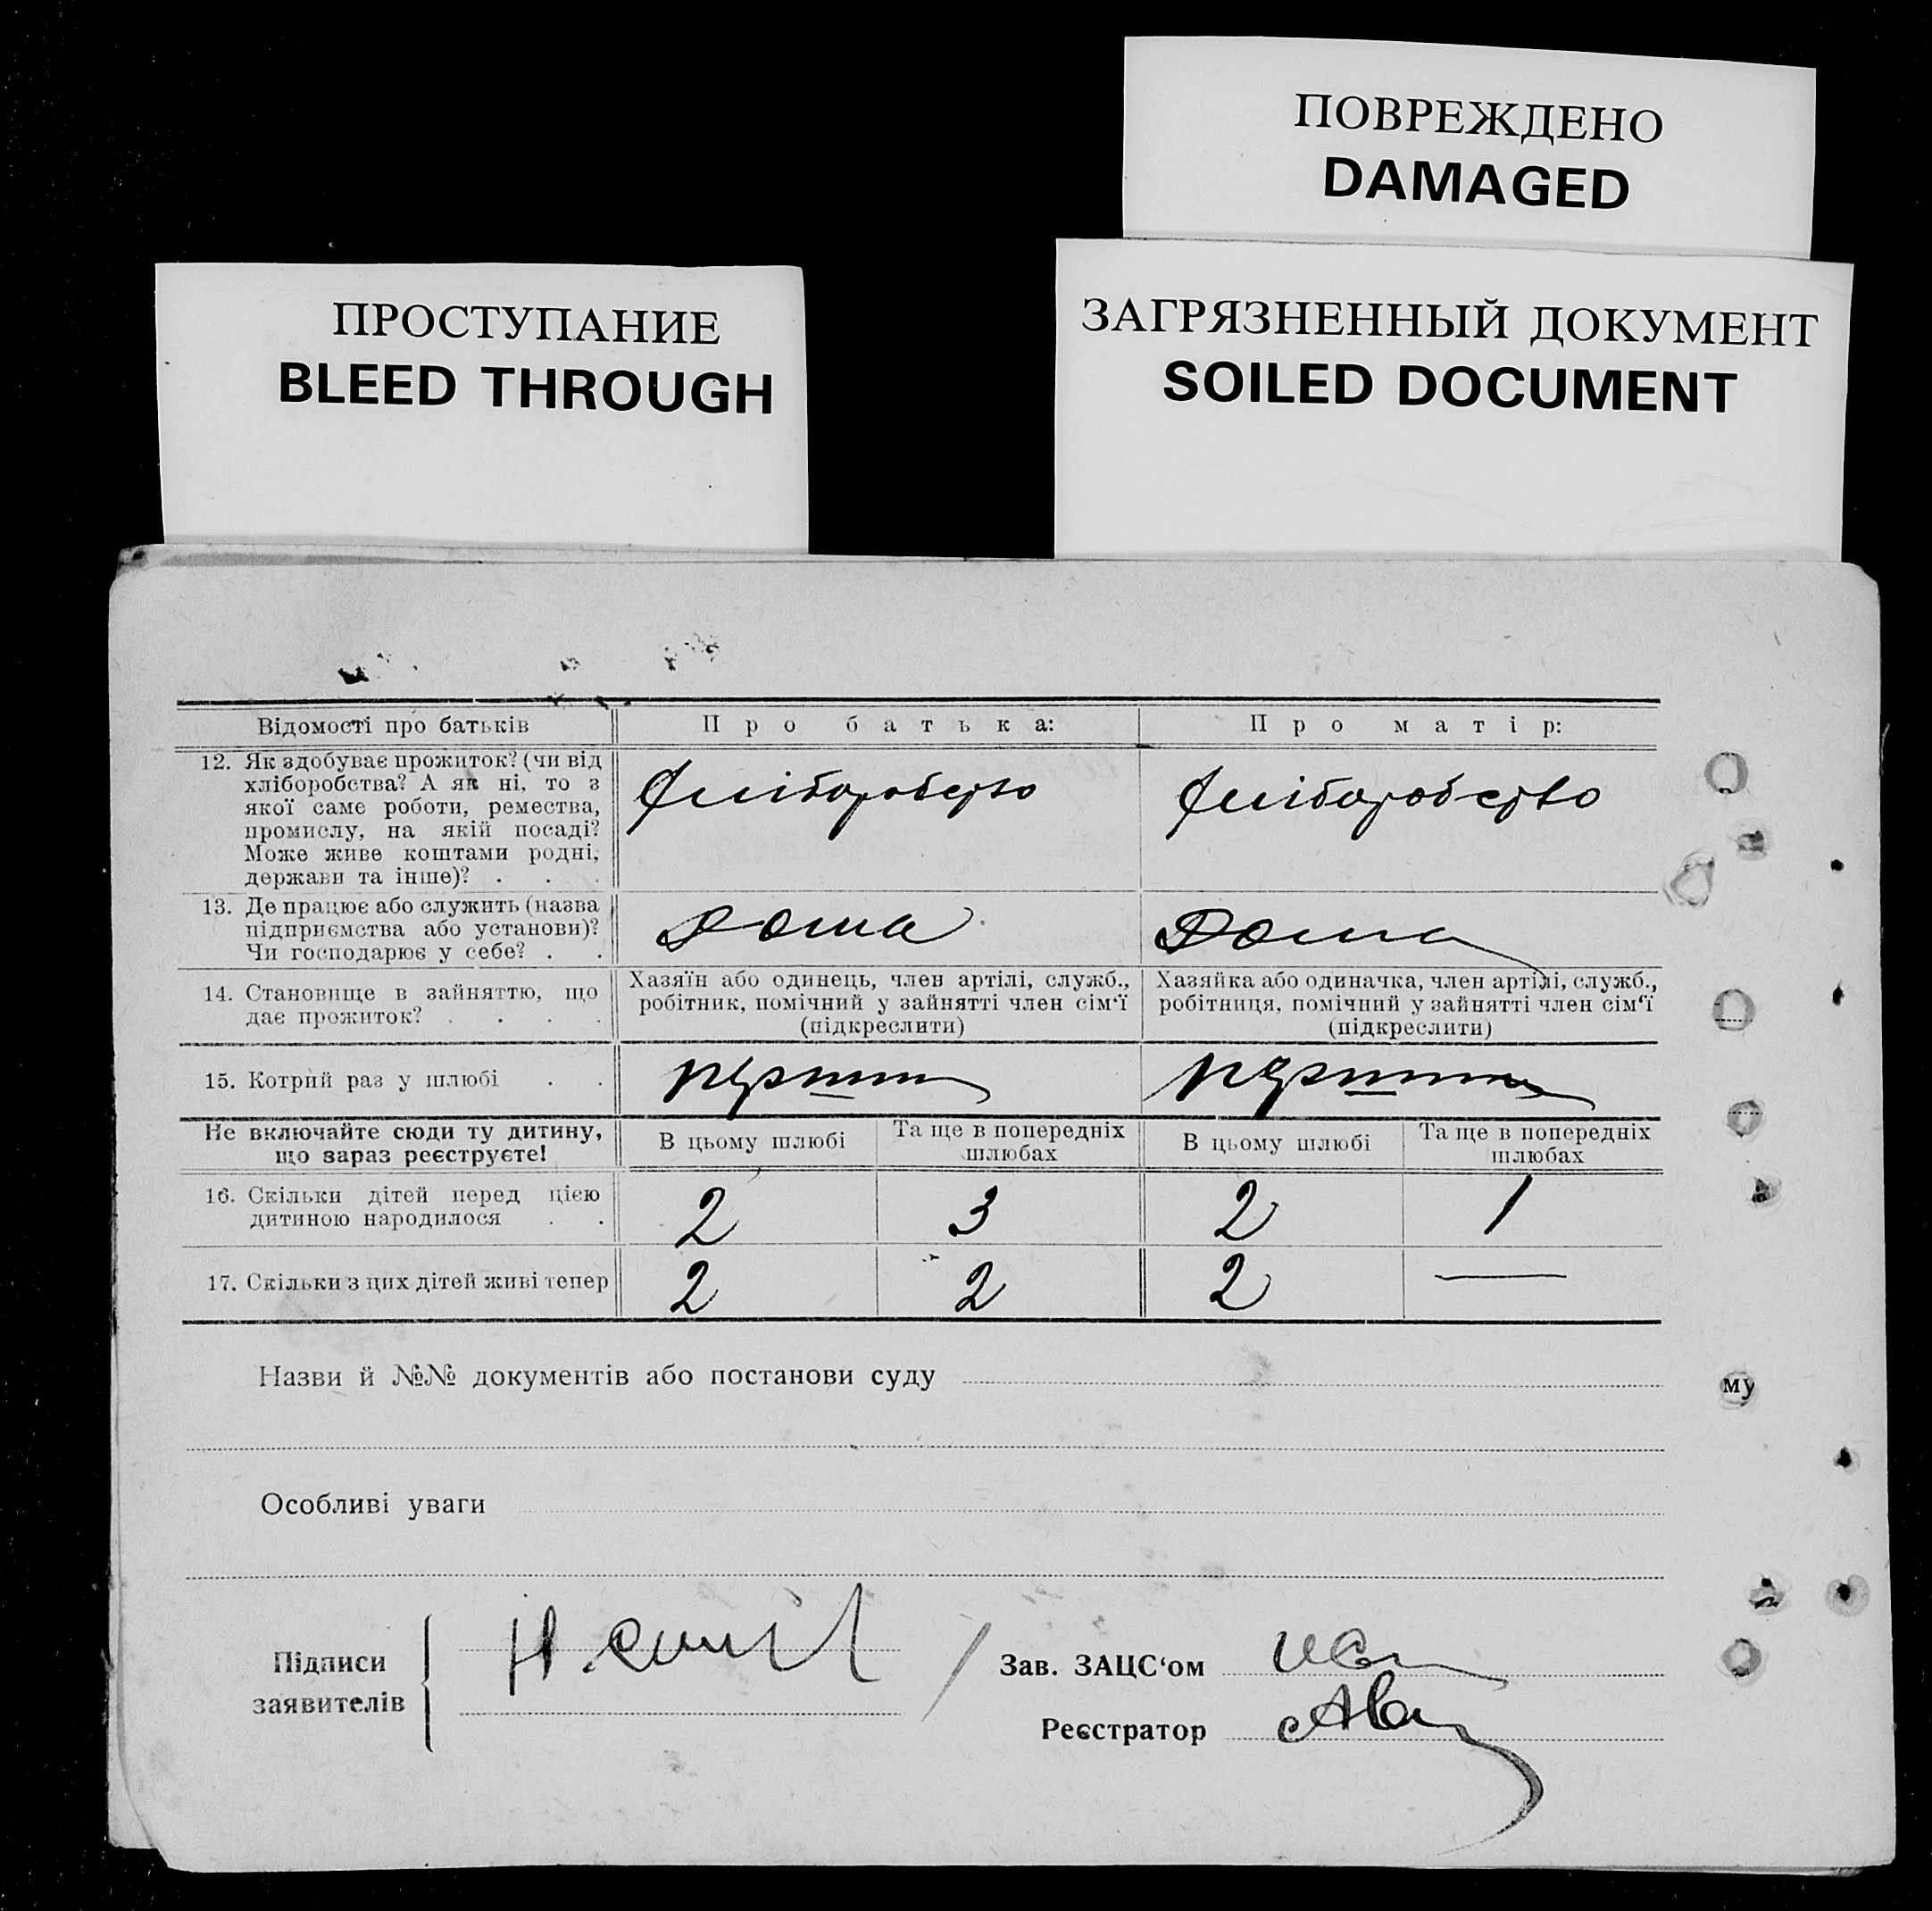 ПОВРЕЖДЕНО
DAMAGED
ПРОСТУПАНИЕ
BLEED THROUGH
ЗАГРЯЗНЕННЫЙ ДОКУМЕНТ
SOILED DOCUMENT
Відомості про батьків
Про батька:
Про матір:
12. Як здобуває прожиток? (чи від
хліборобства? А як ні, то з
якої саме роботи, ремества,
промислу, на якій посаді?
Може живе коштами родні,
держави та інше)? . . .
хліборобство
хліборобство
13. Де працює або служить (назва
підприємства або установи)?
Чи господарює у себе? . .
Дома
Дома
14. Становище в зайняттю, що
дає прожиток? . . . .
Хазяїн або одинець, член артілі, служб.,
робітник, помічний у зайнятті член сім‘ї
(підкреслити)
Хазяйка або одиначка, член артілі, служб.,
робітниця, помічний у зайнятті член сім‘ї
(підкреслити)
15. Котрий раз у шлюбі . .
Не включайте сюди ту дитину,
що зараз реєструєте!
В цьому шлюбі
Та ще в попередніх
шлюбах
В цьому шлюбі
Та ще в попередніх
шлюбах
16. Скільки дітей перед цією
дитиною народилося . .
2
3
2
1
17. Скільки з цих дітей живі тепер
2
2
2
—
Назви й №№ документів або постанови суду
му
Особливі уваги
Підписи
заявителів
Зав. ЗАЦС‘ом
Реєстратор